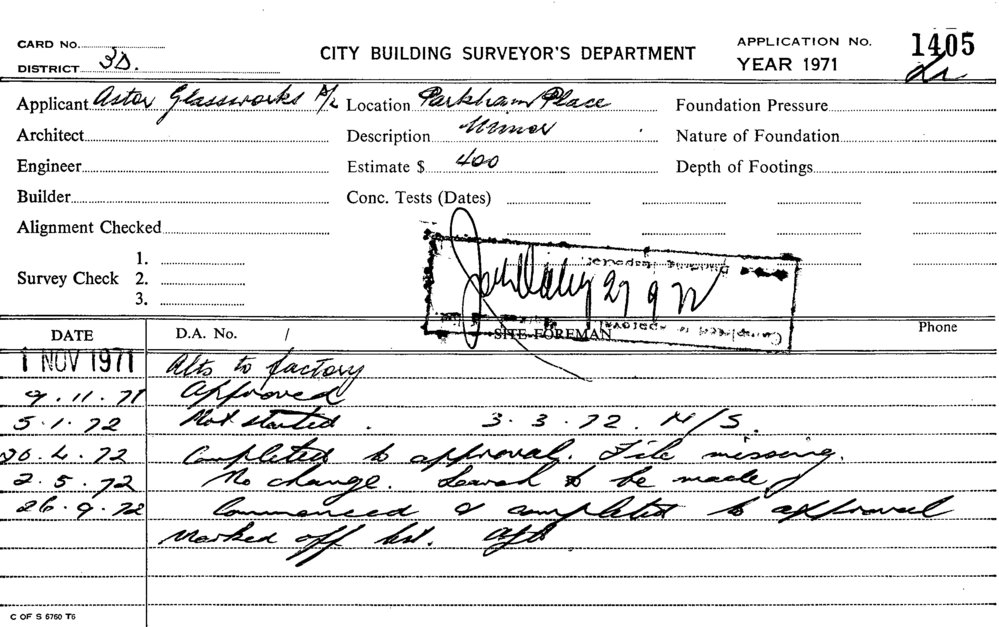 CARD No.
DISTRICT 3D.
CITY BUILDING SURVEYOR'S DEPARTMENT
APPLICATION No. 1405
YEAR 1971
Applicant Astor Glassworks P/L Location Parkham Place Foundation Pressure
Architect Description Minor Nature of Foundation
Engineer Estimate $ 400 Depth of Footings
Builder Conc. Tests (Dates)
Alignment Checked
Survey Check
1.
2.
3.
Building Inspector
27 9 72
Completed to approval
DATE D.A. No. / SITE FOREMAN Phone
1 NOV 1971 Alts to factory
9.11.71 Approved
5.1.72 Not started. 3.3.72. N/S.
20.4.72 Completed to approval. File missing.
2.5.72 No change. Search to be made
26.9.72 Commenced & completed to approval
Marked off list.
C OF S 6760 T6